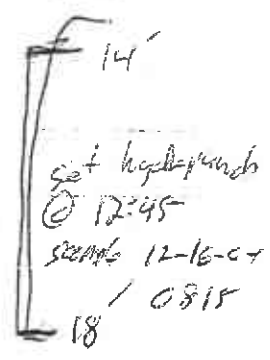 14'
set hydropunch
@ 12:45
sample 12-16-04
/ 0815
18'